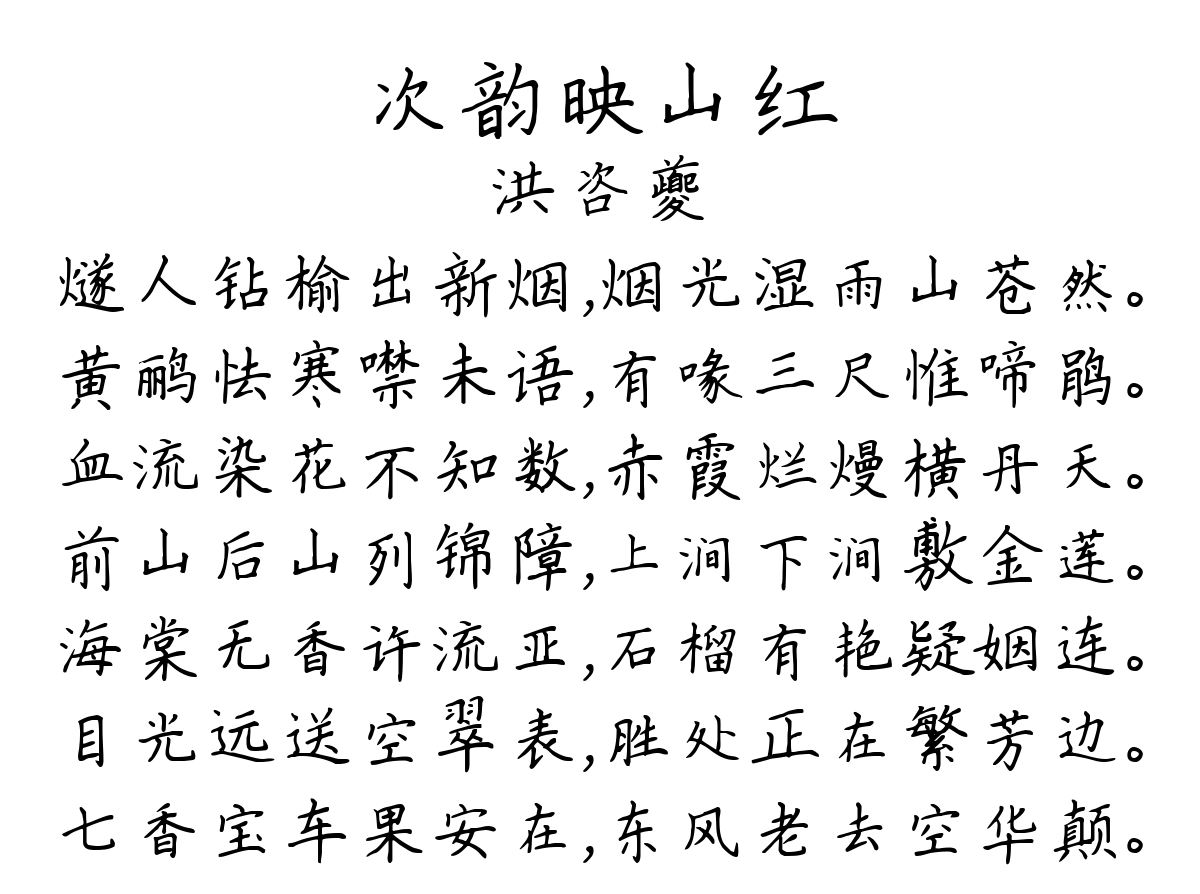 次韵映山红
洪咨夔
燧人钻榆出新烟,烟光湿雨山苍然。
黄鹂怯寒噤未语,有喙三尺惟啼鹃。
血流染花不知数,赤霞烂熳横丹天。
前山后山列锦障,上涧下涧敷金莲。
海棠无香许流亚,石榴有艳疑姻连。
目光远送空翠表,胜处正在繁芳边。
七香宝车果安在,东风老去空华颠。